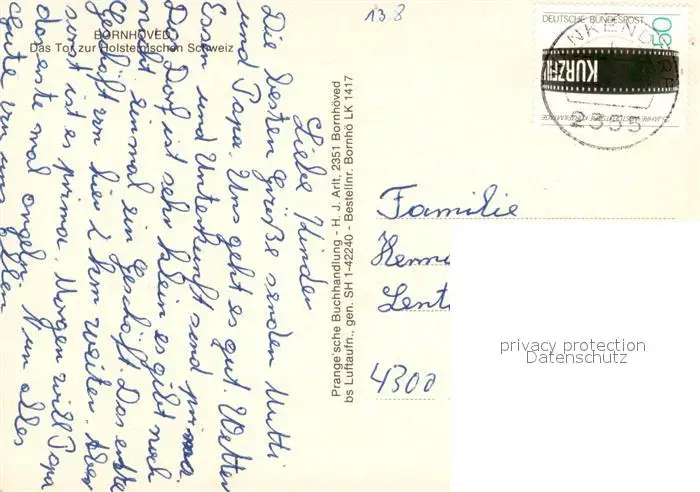 13.8
BORNHÖVED
Das Tor zur Holsteinischen Schweiz
Liebe Kinder
Die besten Grüße senden Mutti
und Papa. Uns geht es gut. Wetter
Essen und Unterkunft send prima.
Das Dorf ist sehr klein es gibt noch
nicht einmal ein Geschäft. Das erste
Geschäft von hier 2 km weiter. Aber
sonst ist es prima. Morgen will Papa
das erste mal angeln
gute von uns allen
Prange'sche Buchhandlung - H. J. Arlt, 2351 Bornhöved
bs Luftaufn., gen. SH 1-42240 - Bestellnr. Bornhö LK 1417
DEUTSCHE BUNDESPOST
KURZFI
2355
Familie
4300
privacy protection
Datenschutz